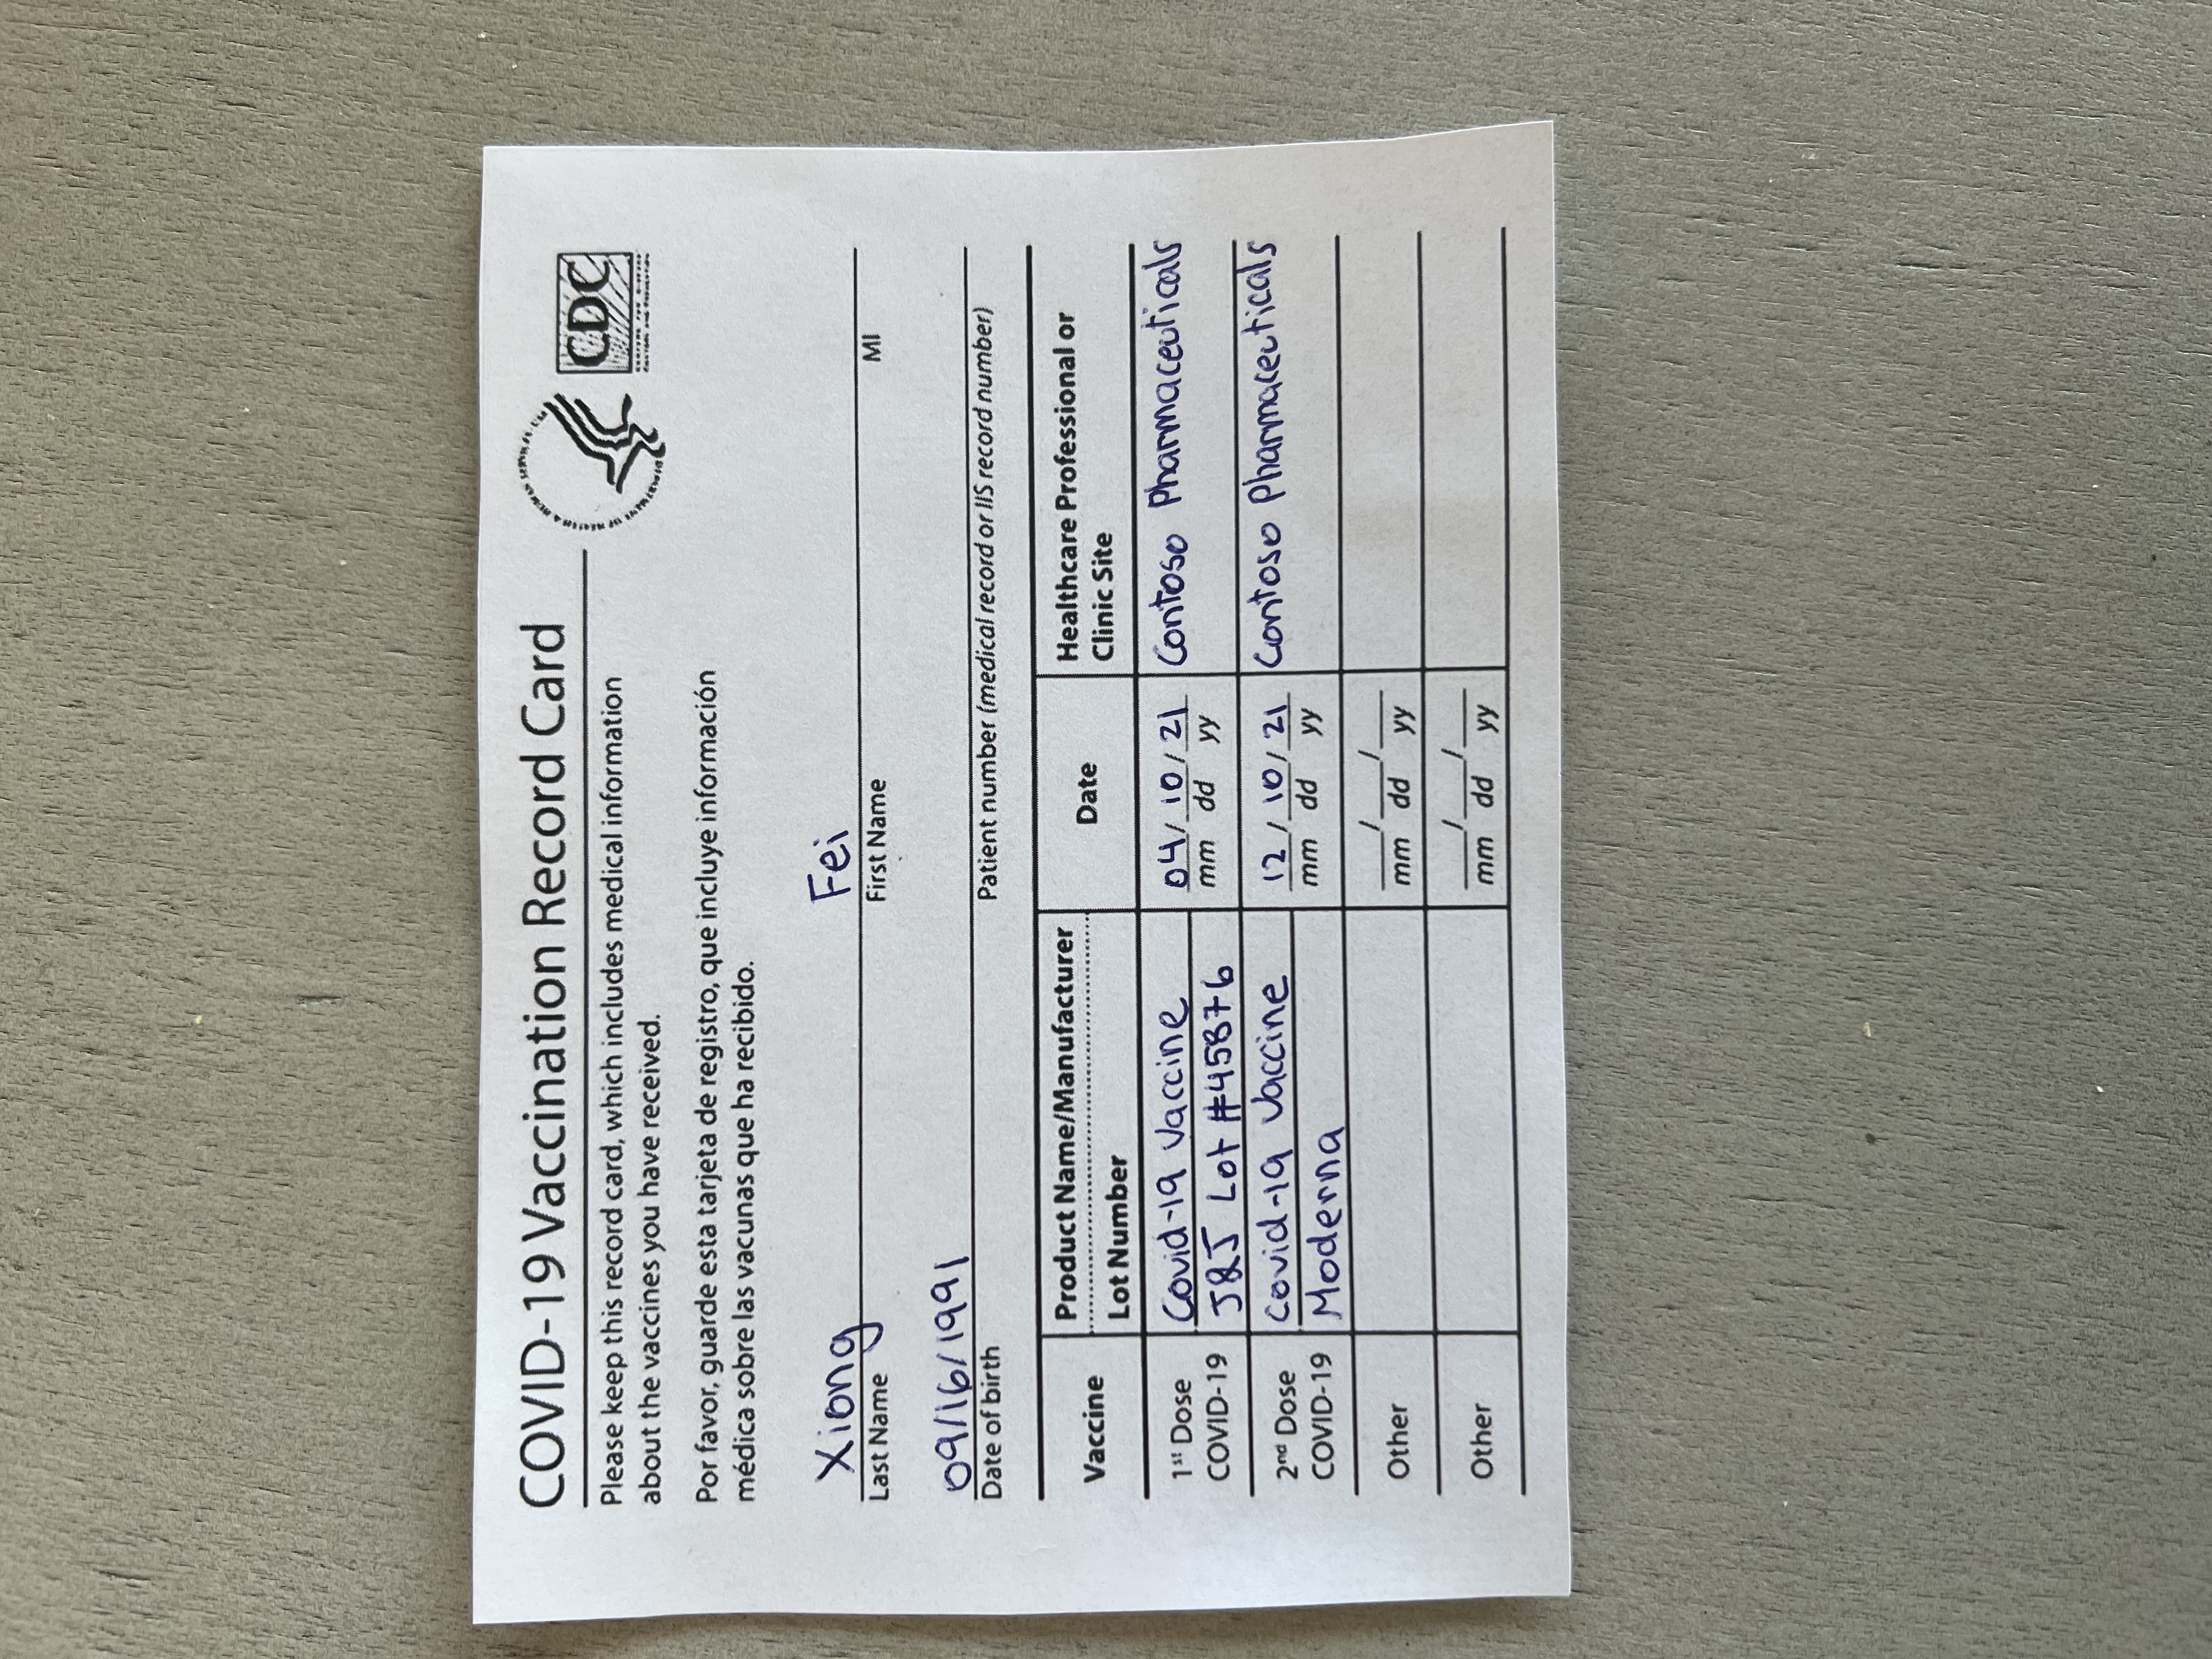 COVID-19 Vaccination Record Card
CDC
Please keep this record card, which includes medical information
about the vaccines you have received.
Por favor, guarde esta tarjeta de registro, que incluye información
médica sobre las vacunas que ha recibido.
Xiong Fei
Last Name First Name MI
09/16/1991
Date of birth Patient number (medical record or IIS record number)
Vaccine
Product Name/Manufacturer
Lot Number
Date
Healthcare Professional or
Clinic Site
1st Dose
COVID-19
Covid-19 Vaccine
J&J Lot #45876
04/10/21
mm dd yy
Contoso Pharmaceuticals
2nd Dose
COVID-19
Covid-19 Vaccine
Moderna
12/10/21
mm dd yy
Contoso Pharmaceuticals
Other
___/___/___
mm dd yy
Other
___/___/___
mm dd yy